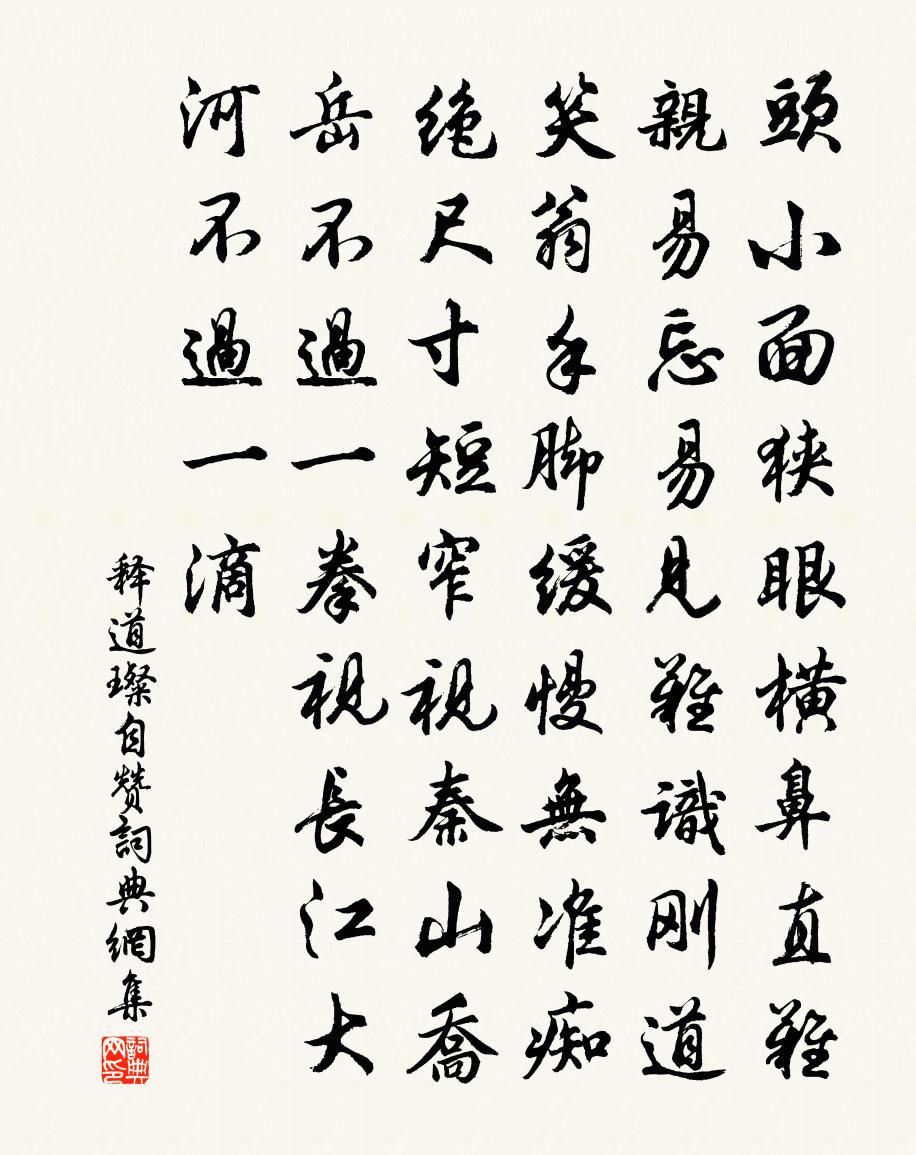 頭小面狹眼橫鼻直難
親易忘易見難識剛道
笑翁手脚緩慢無准痴
絶尺寸短窄視秦山喬
岳不過一拳視長江大
河不過一滴
释道璨自赞詞典網集
詞典网印